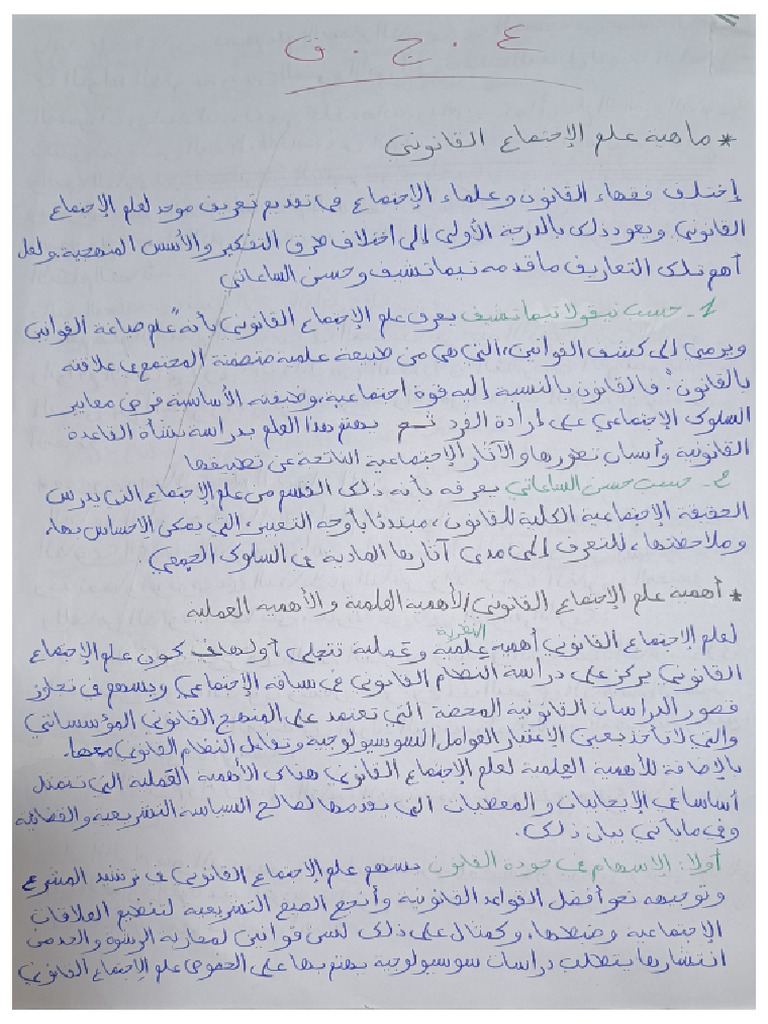 ع . ج . ق
* ماهية علم الإجتماع القانوني
إختلف فقهاء القانون وعلماء الإجتماع في تقديم تعريف موحد لعلم الإجتماع
القانوني. ويعود ذلك بالدرجة الأولى إلى اختلاف طرق التفكير والأسس المنهجية. ولعل
أهم تلك التعاريف ما قدمه تيماتشيف وحسن الساعاتي
1- حسب نيقولا تيماتشيف يعرف علم الإجتماع القانوني بأنه "علم صياغة القوانين
ويرمي إلى كشف القوانين، التي هي من طبيعة علمية متضمنة المجتمع في علاقته
بالقانون". فالقانون بالنسبة إليه قوة اجتماعية، وظيفته الأساسية فرض معايير
السلوك الإجتماعي على إرادة الفرد ثم يهتم هذا العلم بدراسة نشأة القاعدة
القانونية وأسباب تطورها والآثار الإجتماعية الناتجة عن تطبيقها
2- حسب حسن الساعاتي يعرفه بأنه ذلك القسم من علم الإجتماع الذي يدرس
الحقيقة الإجتماعية الكلية للقانون، مبتدئا بأوجه التعبير، التي يمكن الإحساس بها،
وملاحظتها، للتعرف إلى مدى آثارها المادية في السلوك الجمعي.
* أهمية علم الإجتماع القانوني/ الأهمية العلمية والأهمية العملية
لعلم الإجتماع القانوني أهمية علمية النظرية وعملية تتجلى أولهاف كون علم الإجتماع
القانوني يركز على دراسة النظام القانوني في سياقه الإجتماعي ويسهم في تجاوز
قصور الدراسات القانونية المحضة التي تعتمد على المنهج القانوني المؤسساتي
والتي لا تأخذ بعين الإعتبار العوامل السوسيولوجية وتفاعل النظام القانوني معها.
بالإضافة للأهمية العلمية لعلم الإجتماع القانوني هناك الأهمية العملية التي تتمثل
أساسا في الإيجابيات والمعطيات التي يقدمها لصالح السياسة التشريعية والقضائية
وفي ما يأتي بيان ذلك.
أولا: الإسهام في جودة القانون يسهم علم الإجتماع القانوني في ترشيد المشرع
وتوجيهه نحو أفضل القواعد القانونية وأنجع الصيغ التشريعية لتنظيم العلاقات
الإجتماعية وضبطها، وكمثال على ذلك لسن قوانين لمحاربة الرشوة والحد من
انتشارها يتطلب دراسات سوسيولوجية يهتم بها على الخصوص علم الإجتماع القانوني